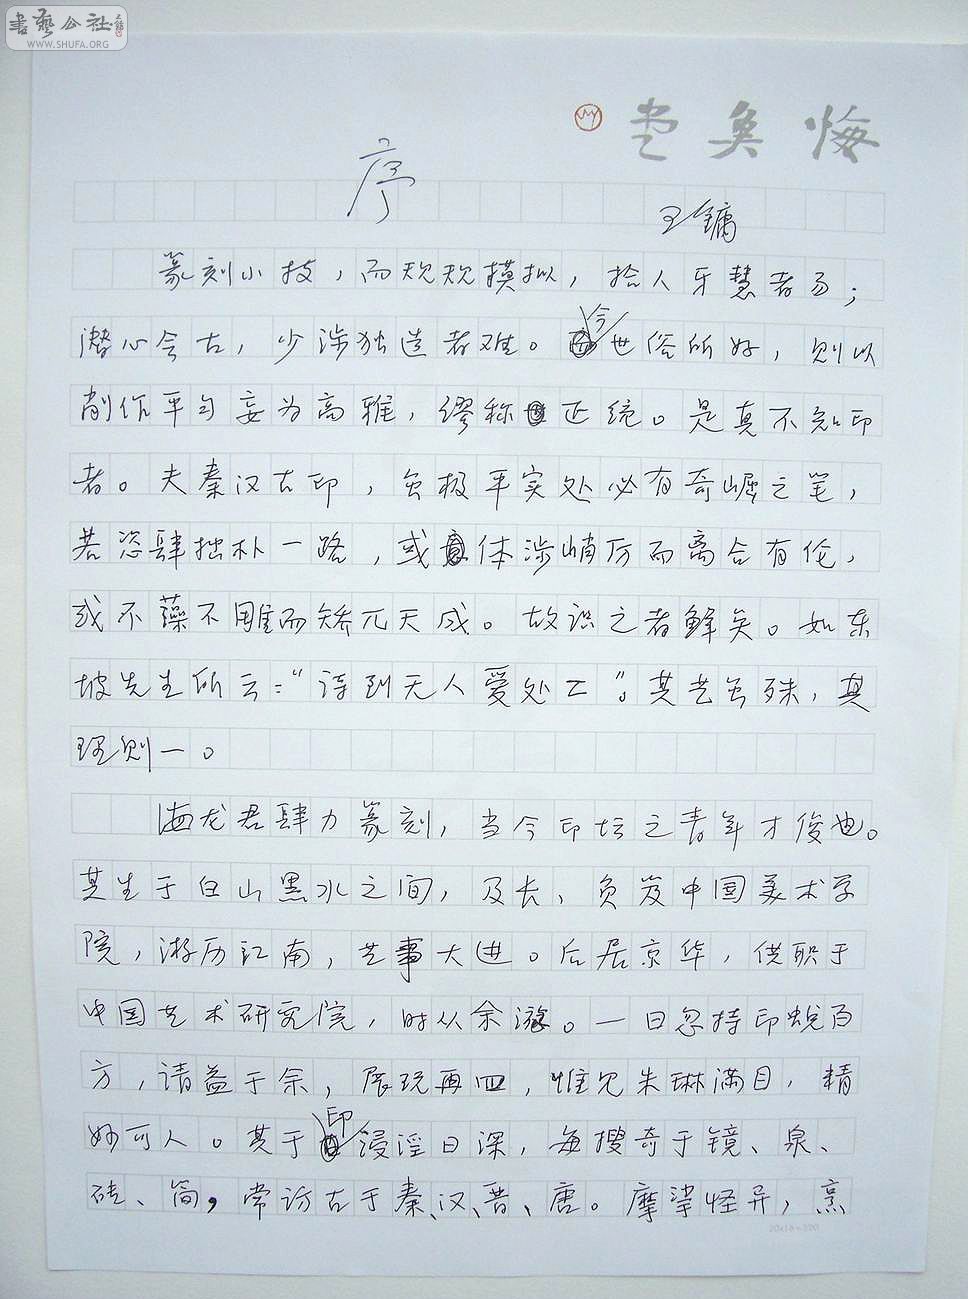 書藝公社
WWW.SHUFA.ORG
悔奐堂
序
王镛
篆刻小技，而规规模拟，拾人牙慧者易；
潜心会古，少涉独造者难。今世俗所好，则以
削作平匀妄为高雅，缪称正统。是真不知印
者。夫秦汉古印，虽极平实处必有奇崛之笔，
若恣肆拙朴一路，或体涉峭厉而离合有伦，
或不藻不雕而矫兀天成。故识之者鲜矣。如东
坡先生所云："诗到无人爱处工"。其艺虽殊，其
理则一。
海龙君肆力篆刻，当今印坛之青年才俊也。
其生于白山黑水之间，及长，负笈中国美术学
院，游历江南，艺事大进。后居京华，供职于
中国艺术研究院，时从余游。一日忽持印蜕百
方，请益于余，展玩再四，惟见朱琳满目，精
妙可人。其于印浸淫日深，每搜奇于镜、泉、
砖、简，常访古于秦、汉、晋、唐。摩挲怪异，烹
20×15=300